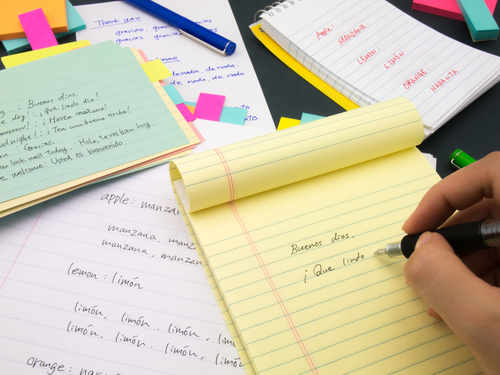 Thank you
gracias, gracias
gracias, gracias
de nada, de nada
de nada, de nada
Apple MANZANA
LEMON LIMÓN
ORANGE NARANJA
: Buenos días.
day! : ¡Que lindo día!
! : ¡Hasta mañana!
night! : ¡Ten una buena noche!
Gracias.
you look well today. Hola, te ves bien hoy.
welcome. Usted es bienvenido.
apple: manzan
manzana, manz
manzana, manzan
lemon: limón
limón, limón, limón, li
limón, limón, limón, l
orange: nar
Buenos días.
¡Que lindo